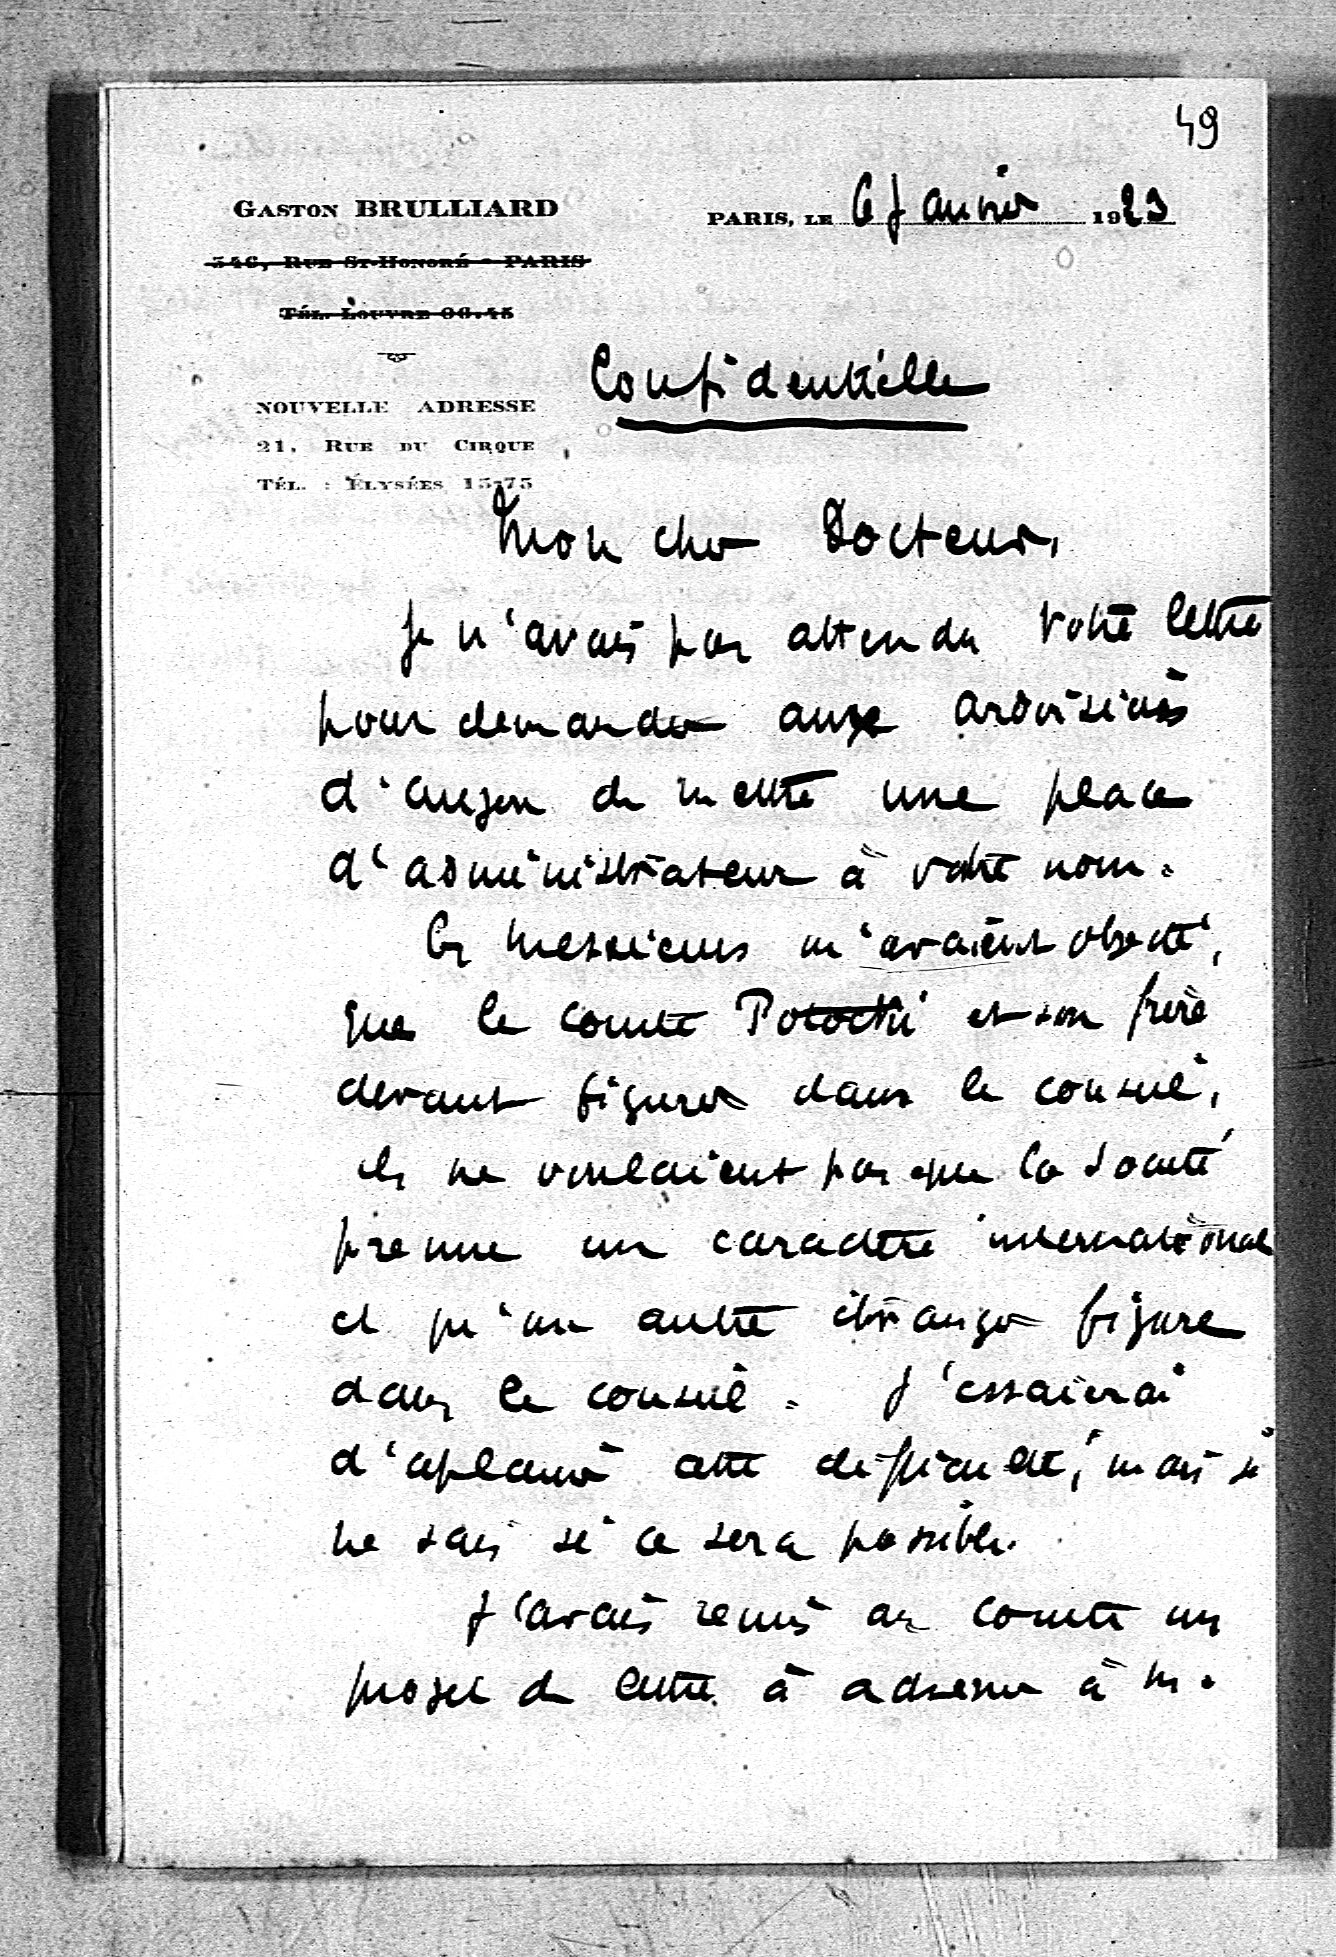 49
GASTON BRULLIARD
PARIS, LE 6 Janvier 1923
346, RUE ST-HONORÉ - PARIS
TÉL. LOUVRE 06.45
Confidentielle
NOUVELLE ADRESSE
21, RUE DU CIRQUE
TÉL. : ÉLYSÉES 15-75
Mon cher Docteur,
Je n'avais pas attendu votre lettre
pour demander aux ardoisières
d'Angers de mettre une place
d'administrateur à votre nom.
Ces messieurs m'avaient objecté,
que le comte Potocki et son frère
devant figurer dans le conseil,
ils ne voulaient pas que la Société
prenne un caractère international
et qu'un autre étranger figure
dans le conseil. J'essaierai
d'aplanir cette difficulté, mais je
ne sais si ce sera possible.
J'avais remis au comte un
projet de lettre à adresser à M.